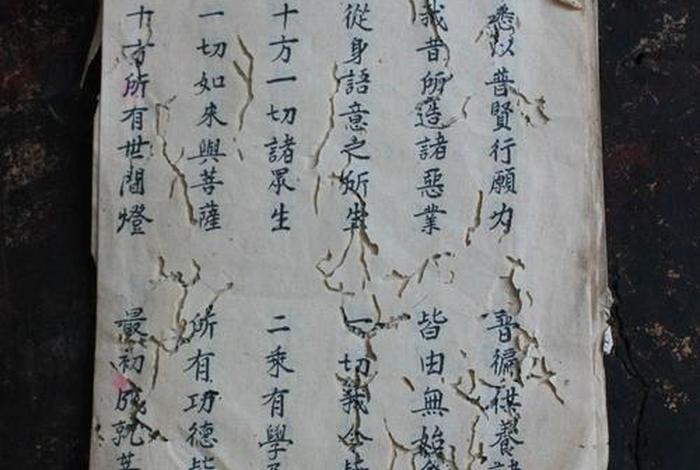 悉以普賢行願力 普徧供養
我昔所造諸惡業 皆由無始
從身語意之所生 一切我今皆
十方一切諸眾生 二乘有學及
一切如來與菩薩 所有功德皆
十方所有世間燈 最初成就菩